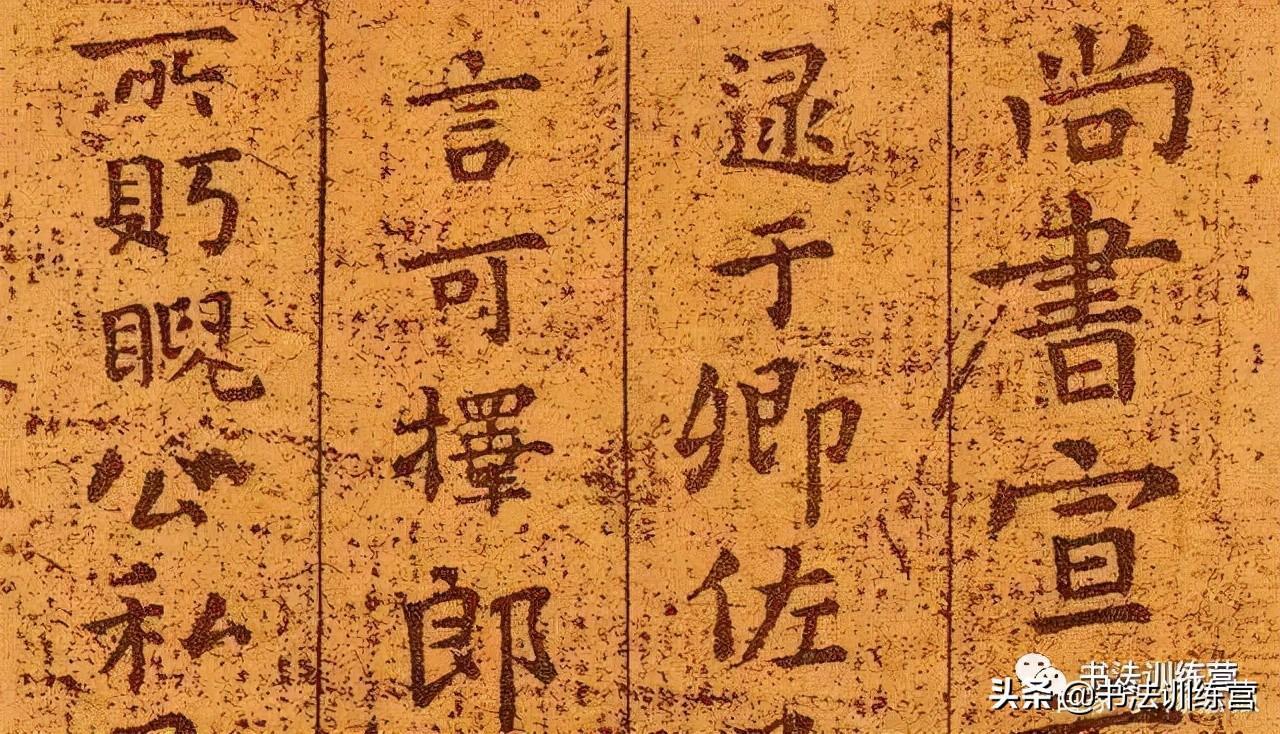 尚書宣
逮于卿佐
言可擇郎
所眄睨公私
书法训练营
头条@书法训练营